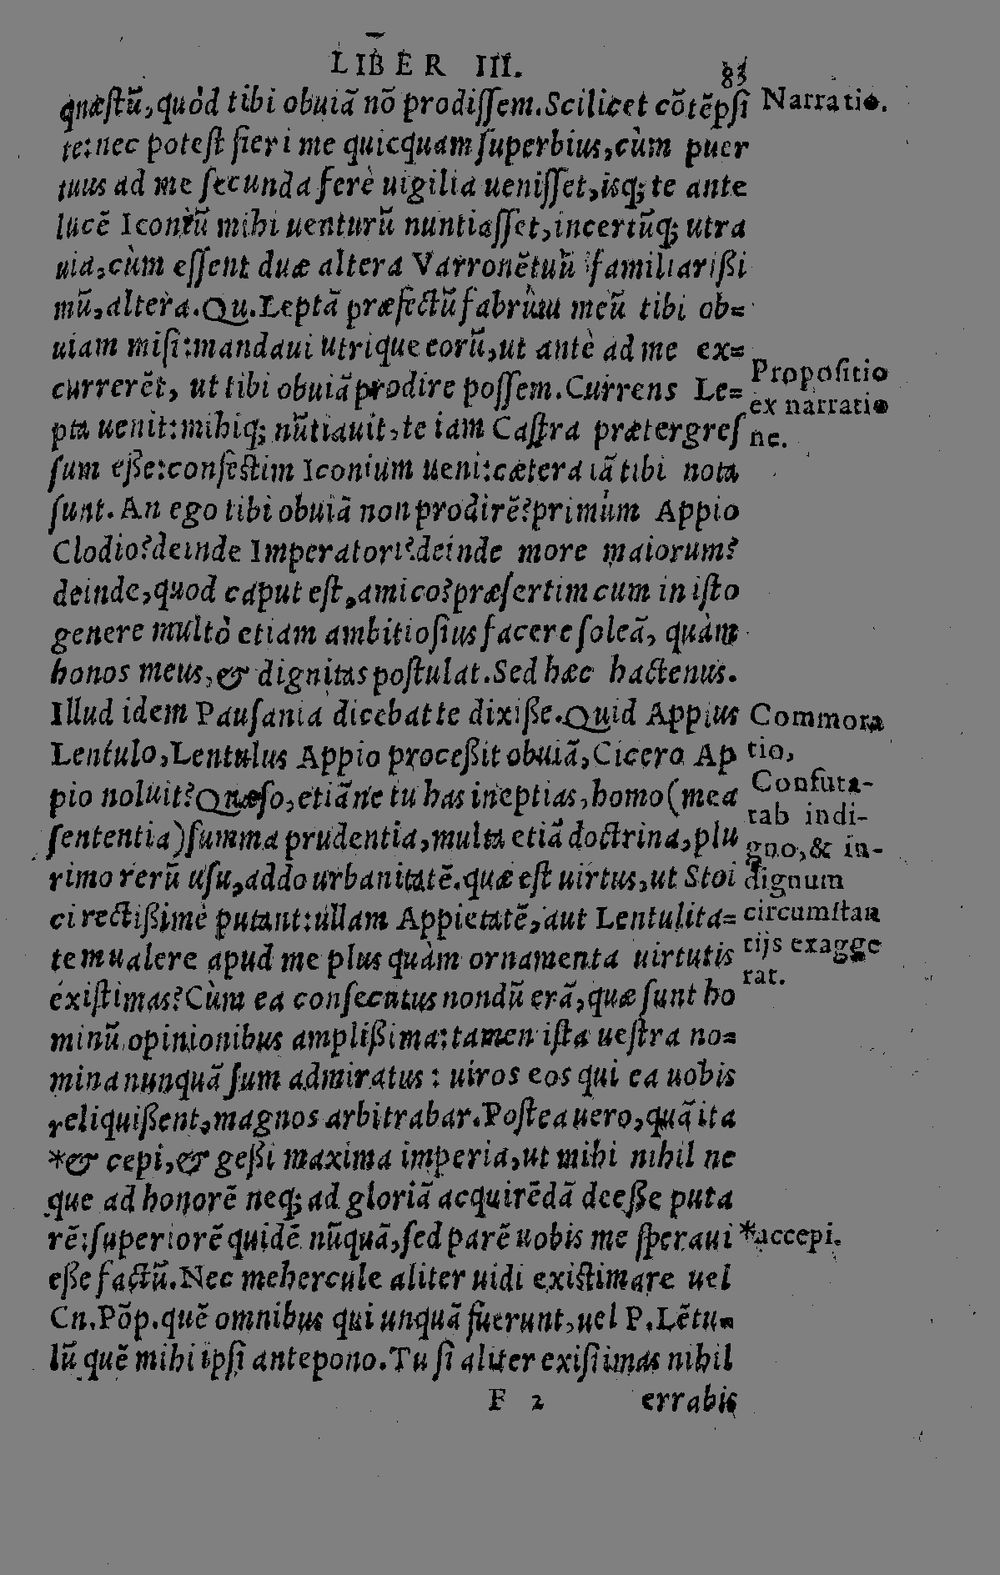 LIBER III. 83
quæstũ, quòd tibi obuiã nõ prodissem. Scilicet cõtẽpsi
te: nec potest fieri me quicquam superbius, cùm puer
tuus ad me secunda ferè uigilia uenisset, isq; te ante
lucẽ Iconiũ mihi uenturũ nuntiasset, incertũq; utra
uia, cùm essent duæ altera Varronẽ tuũ familiarißi
mũ, altera. Qu. Leptã præfectũ fabrùm meũ tibi ob=
uiam misi: mandaui utrique eorũ, ut antè ad me ex=
currerẽt, ut tibi obuiã prodire possem. Currens Le=
pta uenit: mihiq; nũtiauit, te iam Castra prætergres
sum eße: confestim Iconium ueni: cætera iã tibi nota
sunt. An ego tibi obuiã non prodirẽ? primùm Appio
Clodio? deinde Imperatori? deinde more maiorum?
deinde, quod caput est, amico? præsertim cum in isto
genere multò etiam ambitiosius facere soleã, quàm
honos meus, & dignitas postulat. Sed hæc hactenus.
Illud idem Pausania dicebat te dixiße. Quid Appius
Lentulo, Lentulus Appio proceßit obuiã, Cicero Ap
pio noluit? Quæso, etiã ne tu has ineptias, homo (mea
sententia) summa prudentia, multa etiã doctrina, plu
rimo rerũ usu, addo urbanitatẽ. quæ est uirtus, ut Stoi
ci rectißimè putant: ullam Appietatẽ, aut Lentulita=
tem ualere apud me plus quàm ornamenta uirtutis
existimas? Cùm ea consecutus nondũ erã, quæ sunt ho
minũ opinionibus amplißima: tamen ista uestra no=
mina nunquã sum admiratus: uiros eos qui ea uobis
reliquißent, magnos arbitrabar. Postea uero, quã ita
*& cepi, & geßi maxima imperia, ut mihi nihil ne
que ad honorẽ neq; ad gloriã acquirẽdã deeße puta
rẽ: superiorẽ quidẽ nũquã, sed parẽ uobis me speraui
eße factũ. Nec mehercule aliter uidi existimare uel
Cn. Põp. quẽ omnibus qui unquã fuerunt, uel P. Lẽtu=
lũ quẽ mihi ipsi antepono. Tu si aliter existimas nihil
F 2 errabis
Narratio.
Propositio
ex narratio
ne.
Commora
tio,
Confuta-
tab indi-
gno, & in-
dignum
circumstan
tijs exagge
rat.
*accepi.